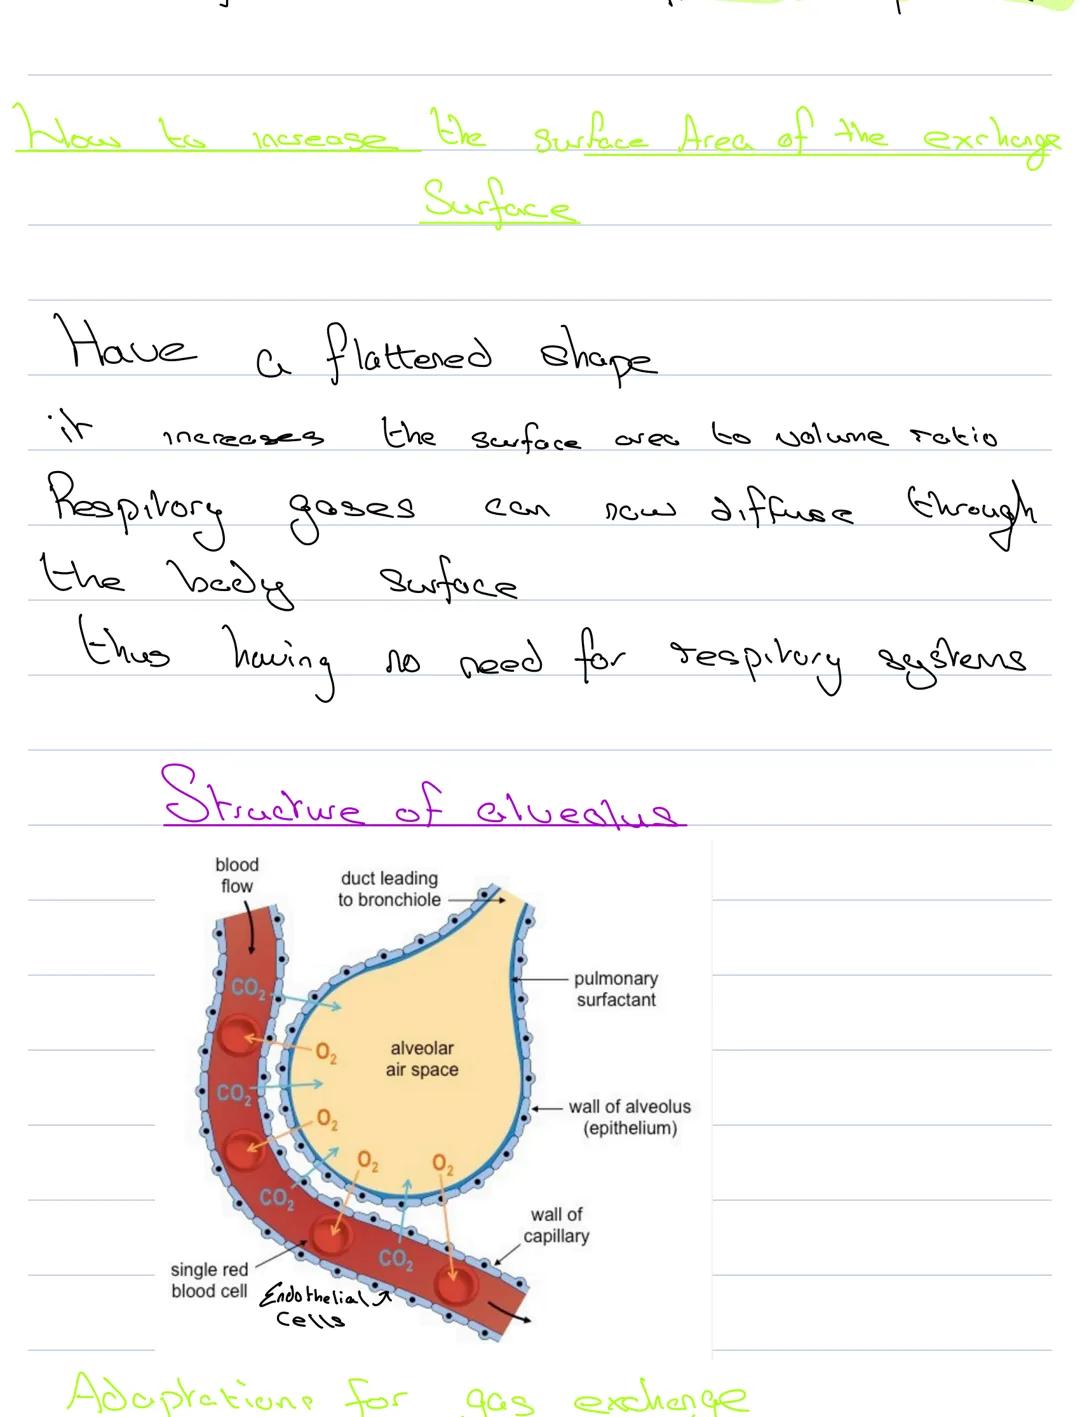 How to increase the surface Area of the exchange
Surface
Have a flattered shape
it increases the surface area to volume ratio
Respitory gases can now diffuse through
the body surface
thus having no need for respitory systems
Structure of alveolus
blood
flow
duct leading
to bronchiole
pulmonary
surfactant
CO2
O2
alveolar
air space
CO2
wall of alveolus
(epithelium)
O2
O2
O2
CO2
wall of
capillary
CO2
single red
blood cell
Endothelial
Cells
Adaptations for gas exchange